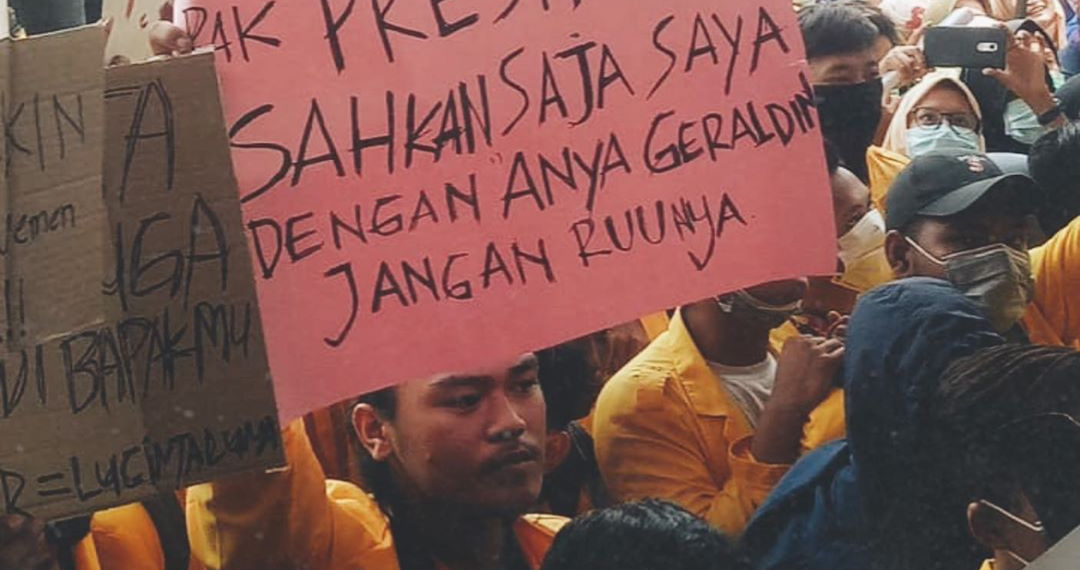 PAK PRES
SAHKAN SAJA SAYA
DENGAN "ANYA GERALDIN
JANGAN RUUNYA
KIN
A
IGA
DI BAPAKMU
R=LUCINTALUNA